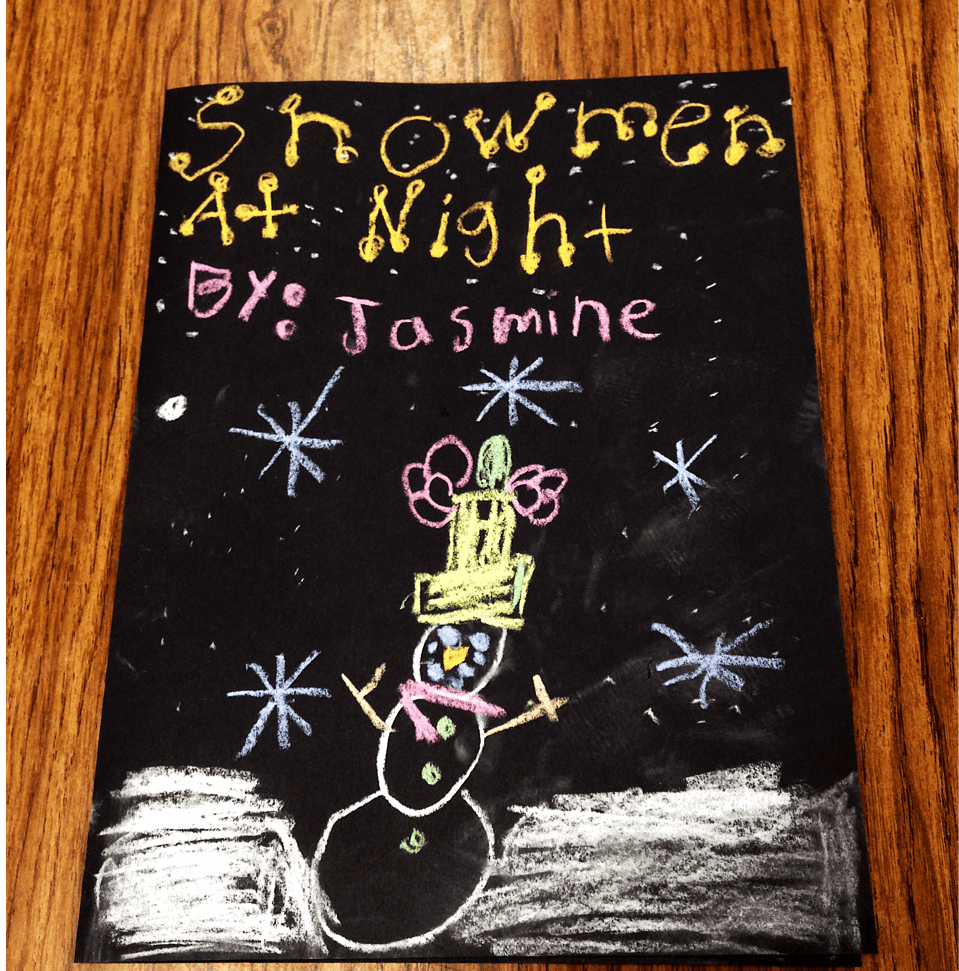 Snowmen
At Night
BY: Jasmine